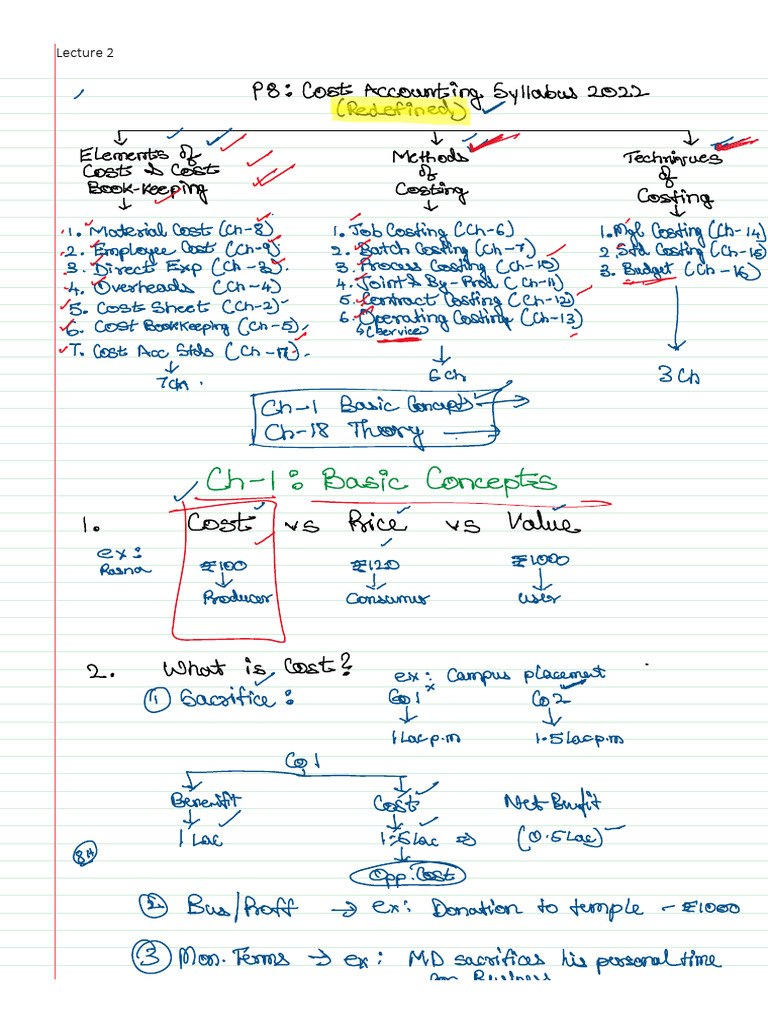 Lecture 2
P8: Cost Accounting Syllabus 2022
(Redefined)
Elements of Cost & Cost Book-keeping
1. Material Cost (Ch-8)
2. Employee Cost (Ch-9)
3. Direct Exp (Ch-3)
4. Overheads (Ch-4)
5. Cost Sheet (Ch-2)
6. Cost Bookkeeping (Ch-5)
7. Cost Acc Stds (Ch-17)
7Ch
Methods of Costing
1. Job Costing (Ch-6)
2. Batch Costing (Ch-7)
3. Process Costing (Ch-10)
4. Joint & By-Prod (Ch-11)
5. Contract Costing (Ch-12)
6. Operating Costing (Ch-13)
(Service)
6 Ch
Techniques of Costing
1. Mgl Costing (Ch-14)
2. Std Costing (Ch-15)
3. Budget (Ch-16)
3 Ch
Ch-1 Basic Concepts
Ch-18 Theory
Ch-1: Basic Concepts
1. Cost vs Price vs Value
ex: Rasna
₹100 ₹120 ₹1000
Producer Consumer User
2. What is Cost?
ex: Campus placement
① Sacrifice: Co 1 Co 2
1 Lac p.m 1.5 Lac p.m
Co 1
Benefit Cost Net Benefit
1 Lac 1.5 Lac ⇒ (0.5 Lac)
Opp. Cost
② Bus/Proff → ex: Donation to temple - ₹1000
③ Mon. Terms → ex: MD sacrifices his personal time
for Business